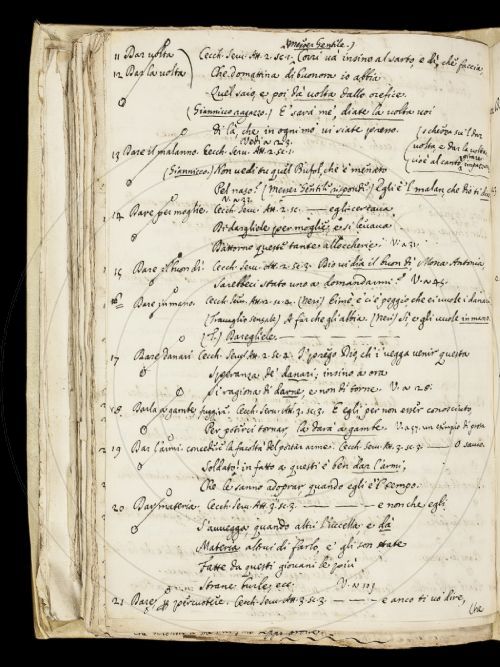 (Messer Gentile.)
11 Dar volta Cecch. Serv. Att. 2. sc. 1. Corri va insino al sarto, e dì, che faccia,
12 Dar la volta Che domattina di buonora io abbia
Quel saio, e poi dà volta dallo orefice.
(Giannicco ragazzo.) E' servi me, diate la volta voi
di là, che in ogni mo' vi siate presso.
13 Dare il malanno. Cecch. Serv. Att. 2. sc. 1.
volta e Dar la volta,
(Giannicco.) Non vedi tu quel che è menato
Pel naso? (Messer Gentile rispondi) Egli è 'l malan, che Dio ti dia
14 Dare per moglie. Cecch. Serv. Att. 2. sc. — egli cercava
Di dargliele per moglie, e si levava
Dattorno queste tante V. n. 31.
15 Dare il buon dì. Cecch. Serv. Att. 2. sc. 3. Dio vi dia il buon dì, Mona Antonia
Sarebbeci stato uno a domandarmi?
16 Dare in mano. Cecch. Att. 2. sc. 2. (Neri) Eimè e ci è peggio che ei vuole i danari
(Travaglio sensale) A far che gli abbia. (Neri) Sì, e gli vuole in mano.
(T.) Daregliele.
17 Dare danari Cecch. Serv. Att. 2. sc. 2. I' prego Dio ch'i' vegga venir questa
Speranza de' danari, insino a ora
Si ragiona di darne, e non di torne. V. n. 28.
18. Darla a gambe. fuggire. Cecch. Serv. Att. 3. sc. 3. E egli per non esser conosciuto
Per potirci tornar, la darà a gambe. V. n. 57. un esempio di prosa
19 Dar l'armi. concedere la facoltà del portar armi. Cecch. Serv. Att. 3. sc. 3. — O savio.
Soldato! in fatto a questi è ben dar l'armi,
Che le sanno adoprar, quando egli è 'l tempo.
20 Dar materia Cecch. Serv. Att. 3. sc. 3. — e non che egli
S'avvegga, quando altri l'uccella e dà
Materia altrui di farlo, e' gli son state
Fatte da questi giovani le più
Strane burle, ecc.
21 Dare percuotere. Cecch. Serv. Att. 3. sc. 3. — e anco ti vo' dire,